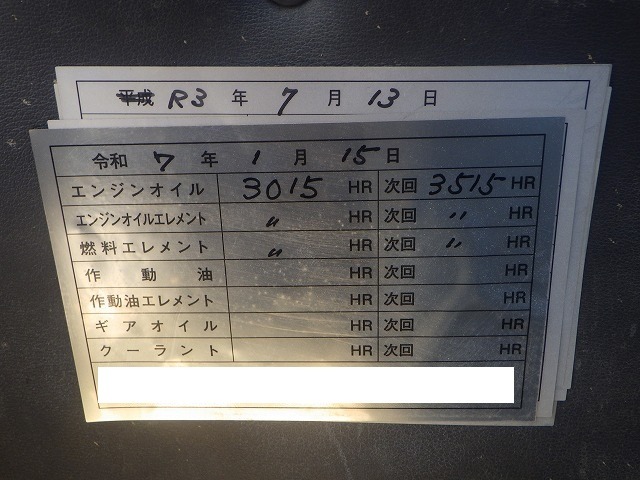 平成 R3 年 7 月 13 日
令和 7 年 1 月 15 日
エンジンオイル 3015 HR 次回 3515 HR
エンジンオイルエレメント 〃 HR 次回 〃 HR
燃料エレメント 〃 HR 次回 〃 HR
作動油 HR 次回 HR
作動油エレメント HR 次回 HR
ギアオイル HR 次回 HR
クーラント HR 次回 HR